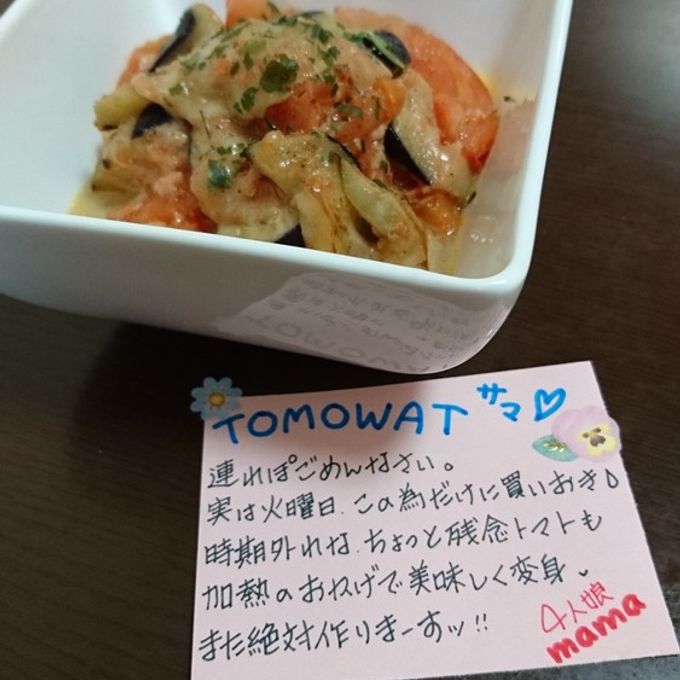 TOMOWAT サマ♡
連れぽごめんなさい。
実は火曜日、この為だけに買いおき♪
時期外れな、ちょっと残念トマトも
加熱のおかげで美味しく変身。
また絶対作りまーすッ!!
4人娘
mama